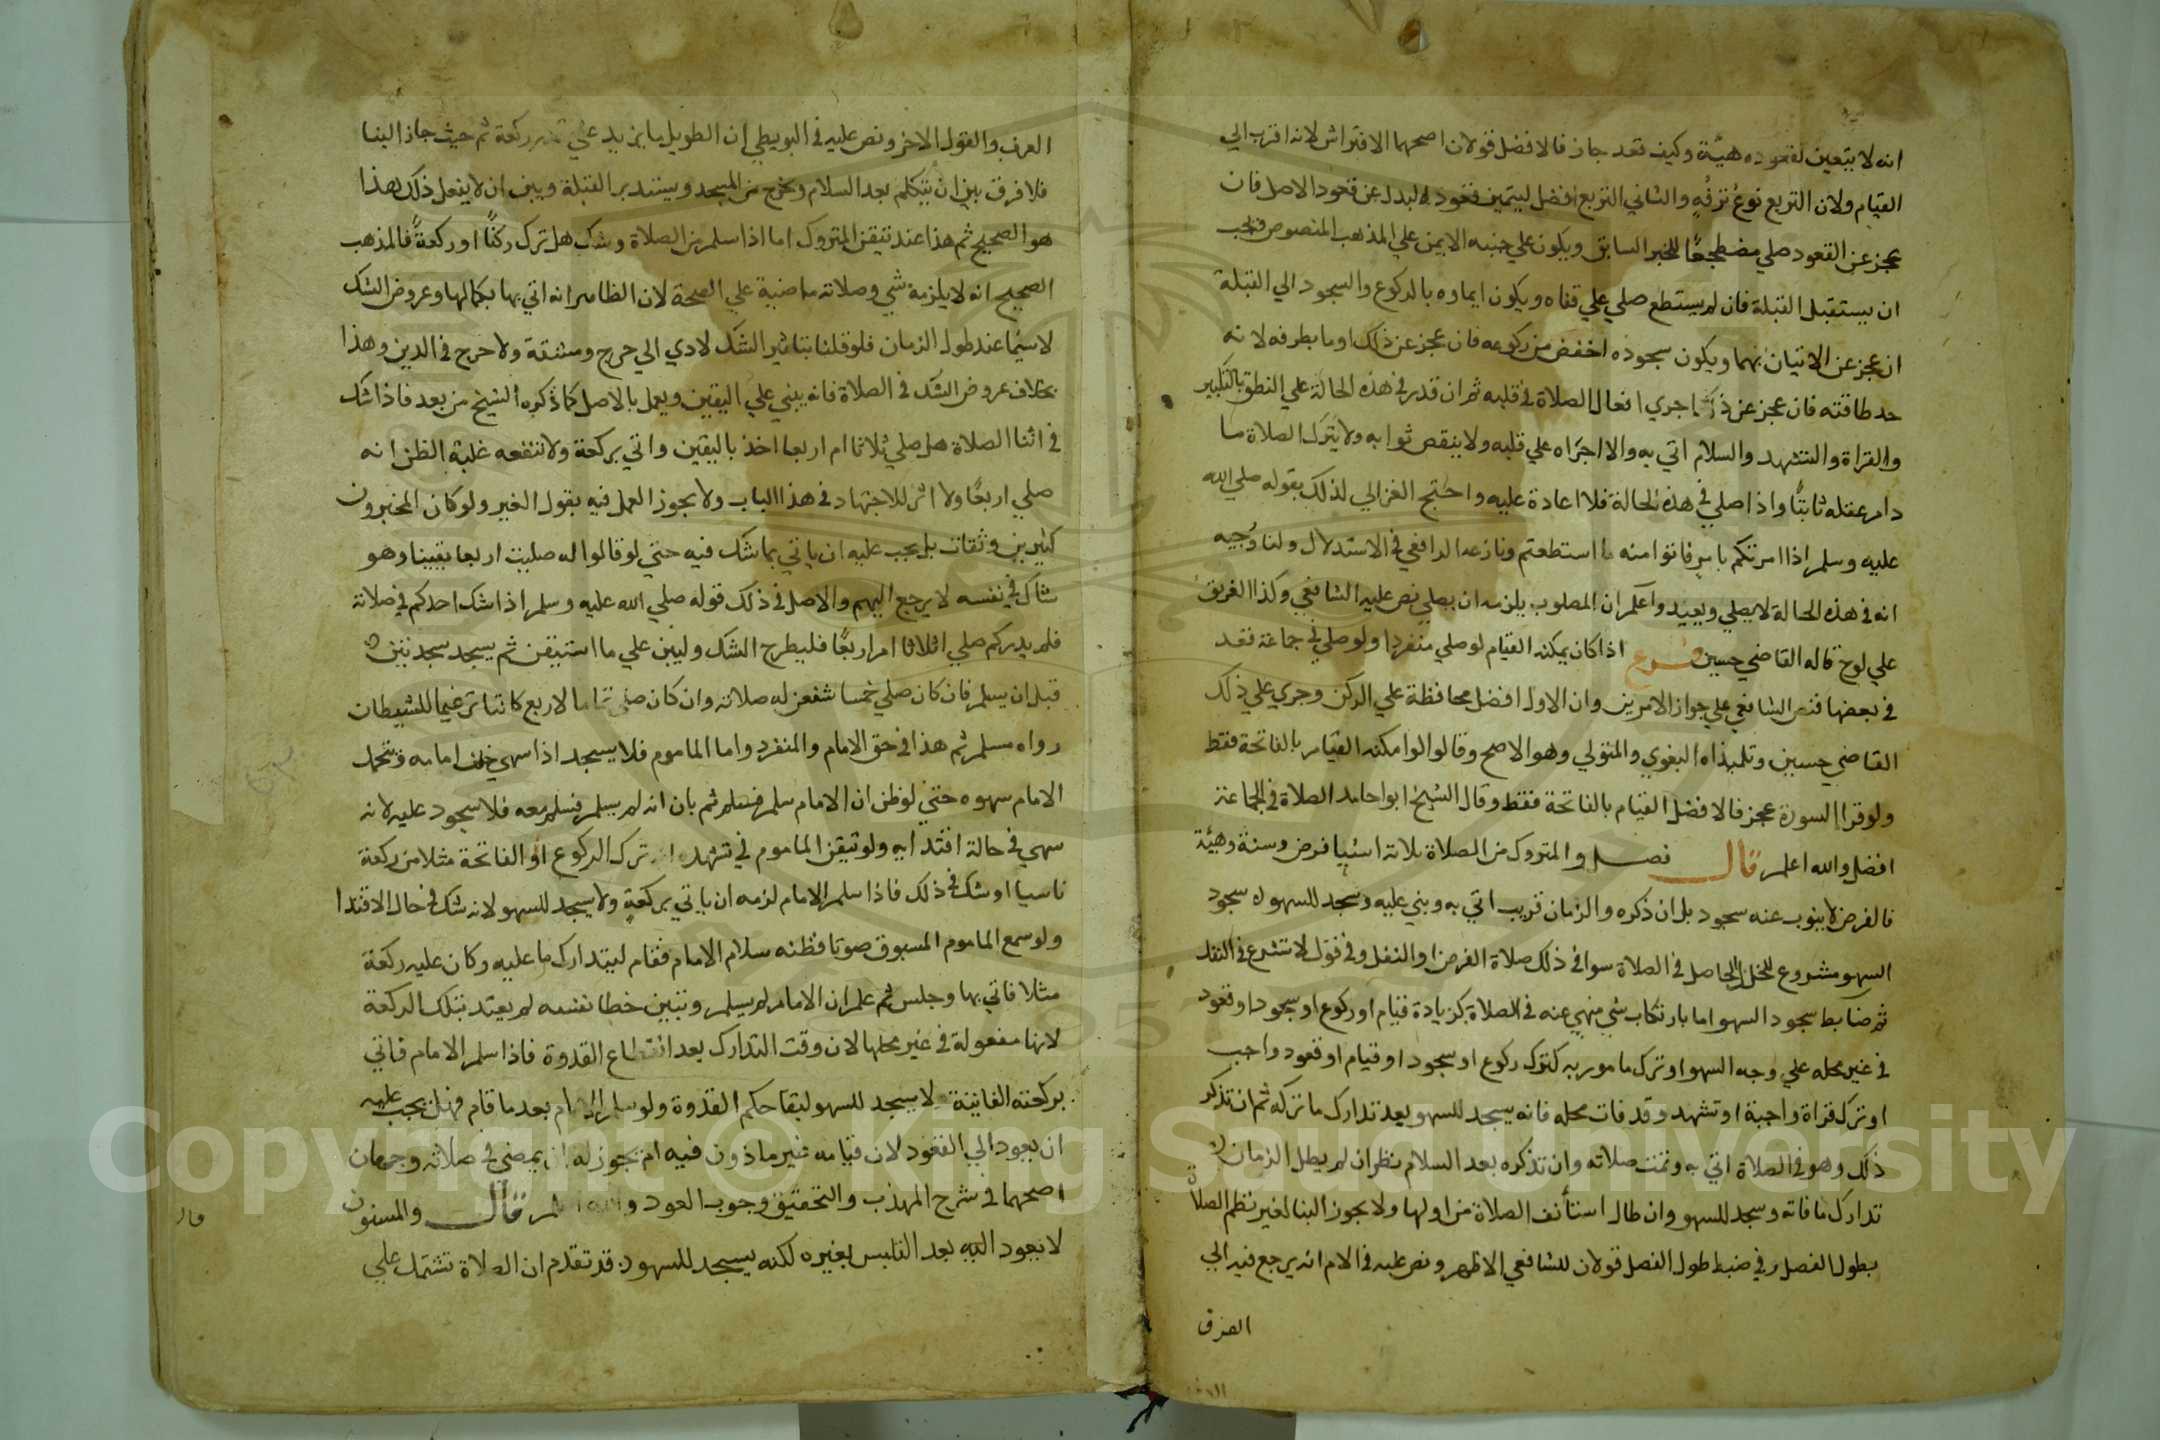 انه لا يتعين لقعوده هيئة وكيف قعد جاز فالافضل قولان اصحهما الافتراش لانه اقرب الي
القيام ولان التربع نوع ترفه والثاني التربع افضل ليتميز قعود البدل عن قعود الاصل فان
عجز عن القعود صلي مضطجعا للخبر السابق ويكون علي جنبه الايمن علي المذهب المنصوص فيجب
ان يستقبل القبلة فان لم يستطع صلي علي قفاه ويكون ايماوه بالركوع والسجود الي القبلة
ان عجز عن الاتيان بهما ويكون سجوده اخفض من ركوعه فان عجز عن ذلك اوما بطرفه لانه
حد طاقته فان عجز عن ذلك اجري افعال الصلاة في قلبه ثم ان قدر في هذه الحالة علي النطق بالتكبير
والقراة والتشهد والسلام اتي به والا اجراه علي قلبه ولا ينقص ثوابه ولا يترك الصلاة ما
دام عقله ثابتا واذا صلي في هذه الحالة فلا اعادة عليه واحتج الغزالي لذلك بقوله صلي الله
عليه وسلم اذا امرتكم بامر فاتوا منه ما استطعتم ونازعه الرافعي في الاستدلال ولنا وجيه
انه في هذه الحالة لا يصلي ويعيد واعلم ان المصلوب يلزمه ان يصلي نص عليه الشافعي وكذا الغريق
علي لوح قاله القاضي حسين فرع اذا كان يمكنه القيام لو صلي منفردا ولو صلي في جماعة فقد
في بعضها فنص الشافعي علي جواز الامرين وان الاول افضل محافظة علي الركن وجري علي ذلك
القاضي حسين وتلميذاه البغوي والمتولي وهو الاصح وقالوا لو امكنه القيام بالفاتحة فقط
ولو قرا السورة عجز فالافضل القيام بالفاتحة فقط وقال الشيخ ابو حامد الصلاة في الجماعة
افضل والله اعلم قال فصل والمتروك من الصلاة ثلاثة اشيا فرض وسنة وهيئة
فالفرض لا ينوب عنه سجود بل ان ذكره والزمان قريب اتي به وبني عليه وسجد للسهو له سجود
السهو مشروع للخلل الحاصل في الصلاة سوا في ذلك صلاة الفرض او النفل وفي قول لا تشرع في النفل
ثم ضابط سجود السهو اما بارتكاب شي منهي عنه في الصلاة كزيادة قيام او ركوع او سجود او قعود
في غير محله علي وجه السهو او ترك مامور به كترك ركوع او سجود او قيام او قعود واجب
او ترك قراة واجبة او تشهد وقد فات محله فانه يسجد للسهو بعد تدارك ما تركه ثم ان تذكر
ذلك وهو في الصلاة اتي به وتمت صلاته وان تذكره بعد السلام نظر ان لم يطل الزمان
تدارك ما فاته وسجد للسهو وان طال استأنف الصلاة من اولها ولا يجوز البنا لغير نظم الصلاة
بطول الفصل وفي ضبط طول الفصل قولان للشافعي الاظهر ونص عليه في الام انه يرجع فيه الي
العرف
العرف والقول الاخر ونص عليه في البويطي ان الطويل ما يزيد علي قدر ركعة ثم حيث جاز البنا
فلا فرق بين ان يتكلم بعد السلام ويخرج من المسجد ويستدبر القبلة وبين ان لا يفعل ذلك هذا
هو الصحيح ثم هذا عند تيقن المتروك اما اذا سلم من الصلاة وشك هل ترك ركنا او ركعة فالمذهب
الصحيح انه لا يلزمه شي وصلاته ماضية علي الصحة لان الظاهر انه اتي بها بكمالها وعروض الشك
لاسيما عند طول الزمان فلو قلنا بتاثير الشك لادي الي حرج ومشقة ولا حرج في الدين وهذا
بخلاف عروض الشك في الصلاة فانه يبني علي اليقين ويعمل بالاصل كما ذكره الشيخ من بعد فاذا شك
في اثنا الصلاة هل صلي ثلاثا ام اربعا اخذ باليقين واتي بركعة ولا تنفعه غلبة الظن انه
صلي اربعا ولا اثر للاجتهاد في هذا الباب ولا يجوز العمل فيه بقول الغير ولو كان المخبرون
كثيرين وثقات بل يجب عليه ان ياتي بما شك فيه حتي لو قالوا له صليت اربعا يقينا وهو
شاك في نفسه لا يرجع اليهم والاصل في ذلك قوله صلي الله عليه وسلم اذا شك احدكم في صلاته
فلم يدر كم صلي اثلاثا ام اربعا فليطرح الشك وليبن علي ما استيقن ثم يسجد سجدتين
قبل ان يسلم فان كان صلي خمسا شفعن له صلاته وان كان صلي تماما لاربع كانتا ترغيما للشيطان
رواه مسلم ثم هذا في حق الامام والمنفرد واما الماموم فلا يسجد اذا سهي خلف امامه ويتحمل
الامام سهوه حتي لو ظن ان الامام سلم فسلم ثم بان انه لم يسلم فسلم معه فلا سجود عليه لانه
سهي في حالة اقتدايه ولو تيقن الماموم في تشهده انه ترك الركوع او الفاتحة مثلا من ركعة
ناسيا او شك في ذلك فاذا سلم الامام لزمه ان ياتي بركعة ولا يسجد للسهو لانه شك في حال الاقتدا
ولو سمع الماموم المسبوق صوتا فظنه سلام الامام فقام ليتدارك ما عليه وكان عليه ركعة
مثلا فاتي بها وجلس ثم علم ان الامام لم يسلم وتبين خطا نفسه لم يعتد بتلك الركعة
لانها مفعولة في غير محلها لان وقت التدارك بعد انقطاع القدوة فاذا سلم الامام فاتي
بركعته الفايتة لا يسجد للسهو لبقا حكم القدوة ولو سلم الامام بعد ما قام فهل يجب عليه
ان يعود الي القعود لان قيامه غير ماذون فيه ام يجوز له ان يمضي في صلاته وجهان
اصحهما في شرح المهذب والتحقيق وجوب العود والله اعلم قال والمسنون
لا يعود اليه بعد التلبس بغيره لكنه يسجد للسهو قد تقدم ان الصلاة تشتمل علي
قال
Copyright © King Saud University